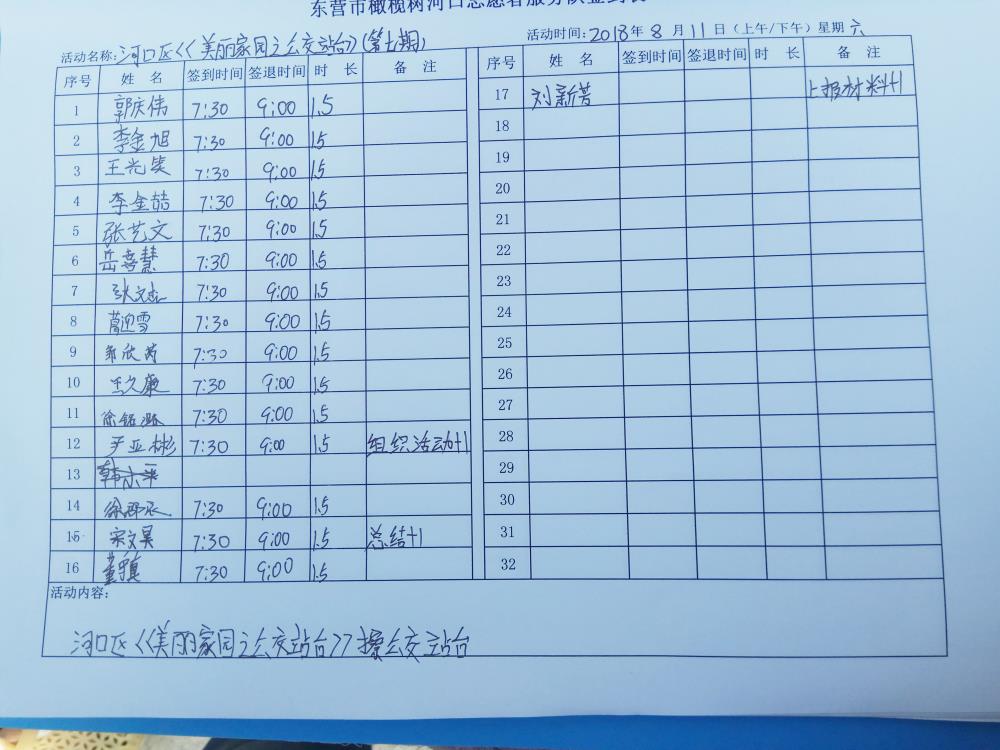 东营市橄榄树河口志愿者服务队签到表
活动名称:河口区<<美丽家园之公交站台>>(第七期) 活动时间:2018年8月11日(上午/下午)星期六
序号 姓 名 签到时间 签退时间 时 长 备 注 序号 姓 名 签到时间 签退时间 时 长 备 注
1 郭庆伟 7:30 9:00 1.5 17 刘新芳 上报材料+1
2 李金旭 7:30 9:00 1.5 18
3 王光笑 7:30 9:00 1.5 19
4 李金喆 7:30 9:00 1.5 20
5 张艺文 7:30 9:00 1.5 21
6 岳喜慧 7:30 9:00 1.5 22
7 张文杰 7:30 9:00 1.5 23
8 葛迎雪 7:30 9:00 1.5 24
9 郭欣芮 7:30 9:00 1.5 25
10 王久廉 7:30 9:00 1.5 26
11 徐铭 7:30 9:00 1.5 27
12 尹亚彬 7:30 9:00 1.5 组织活动+1 28
13 29
14 徐 辰 7:30 9:00 1.5 30
15 宋文昊 7:30 9:00 1.5 总结+1 31
16 董 7:30 9:00 1.5 32
活动内容:
河口区<<美丽家园之公交站台>>擦公交站台